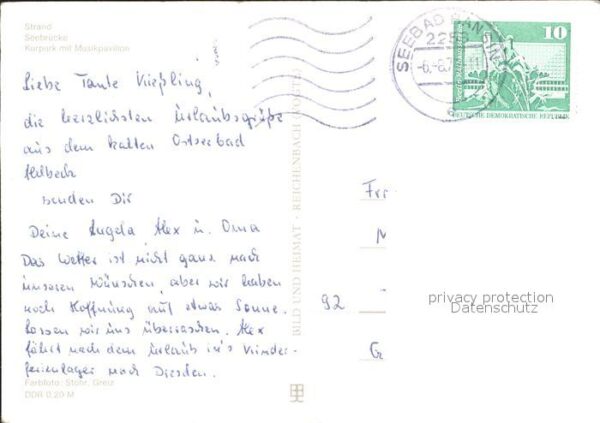 Strand
Seebrücke
Kurpark mit Musikpavillon
Liebe Tante Kießling,
die herzlichsten Urlaubsgrüße
aus dem kalten Ostseebad
Ahlbeck
senden Dir
Deine Angela, Alex u. Oma
Das Wetter ist nicht ganz nach
unseren Wünschen, aber wir haben
noch Hoffnung auf etwas Sonne.
Lassen wir uns überraschen. Alex
fährt nach dem Urlaub in's Kinder-
ferienlager nach Dresden.
Farbfoto: Stöhr, Greiz
DDR 0,20 M
BILD UND HEIMAT · REICHENBACH (VOGTL)
SEEBAD BANSIN
2255
10
DEUTSCHE DEMOKRATISCHE REPUBLIK
Frr
92
privacy protection
Datenschutz